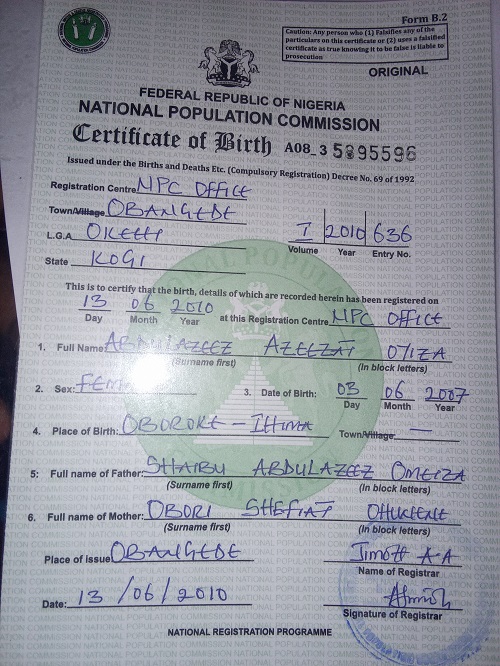 Form B.2
Caution: Any person who (1) Falsifies any of the
particulars on this certificate or (2) uses a falsified
certificate as true knowing it to be false is liable to
prosecution
ORIGINAL
FEDERAL REPUBLIC OF NIGERIA
NATIONAL POPULATION COMMISSION
Certificate of Birth A08_3 5895596
Issued under the Births and Deaths Etc. (Compulsory Registration) Decree No. 69 of 1992
Registration Centre NPC OFFICE
Town/Village OBANGEDE
L.G.A OKEHI
I 2010 636
Volume Year Entry No.
State KOGI
This is to certify that the birth, details of which are recorded herein has been registered on
13 06 2010 at this Registration Centre NPC OFFICE
Day Month Year
1. Full Name: ABDULAZEEZ AZEEZAT OZIZA
(Surname first) (In block letters)
2. Sex: FEM 3. Date of Birth: 03 06 2007
Day Month Year
4. Place of Birth: OBOROKE - IHIMA Town/Village: —
5: Full name of Father: SHAIBU ABDULAZEEZ OMEIZA
(Surname first) (In block letters)
6. Full name of Mother: OBORI SHEFIAT
(Surname first) (In block letters)
Place of issue OBANGEDE Timott A-A
Name of Registrar
Date: 13/06/2010
Signature of Registrar
NATIONAL REGISTRATION PROGRAMME